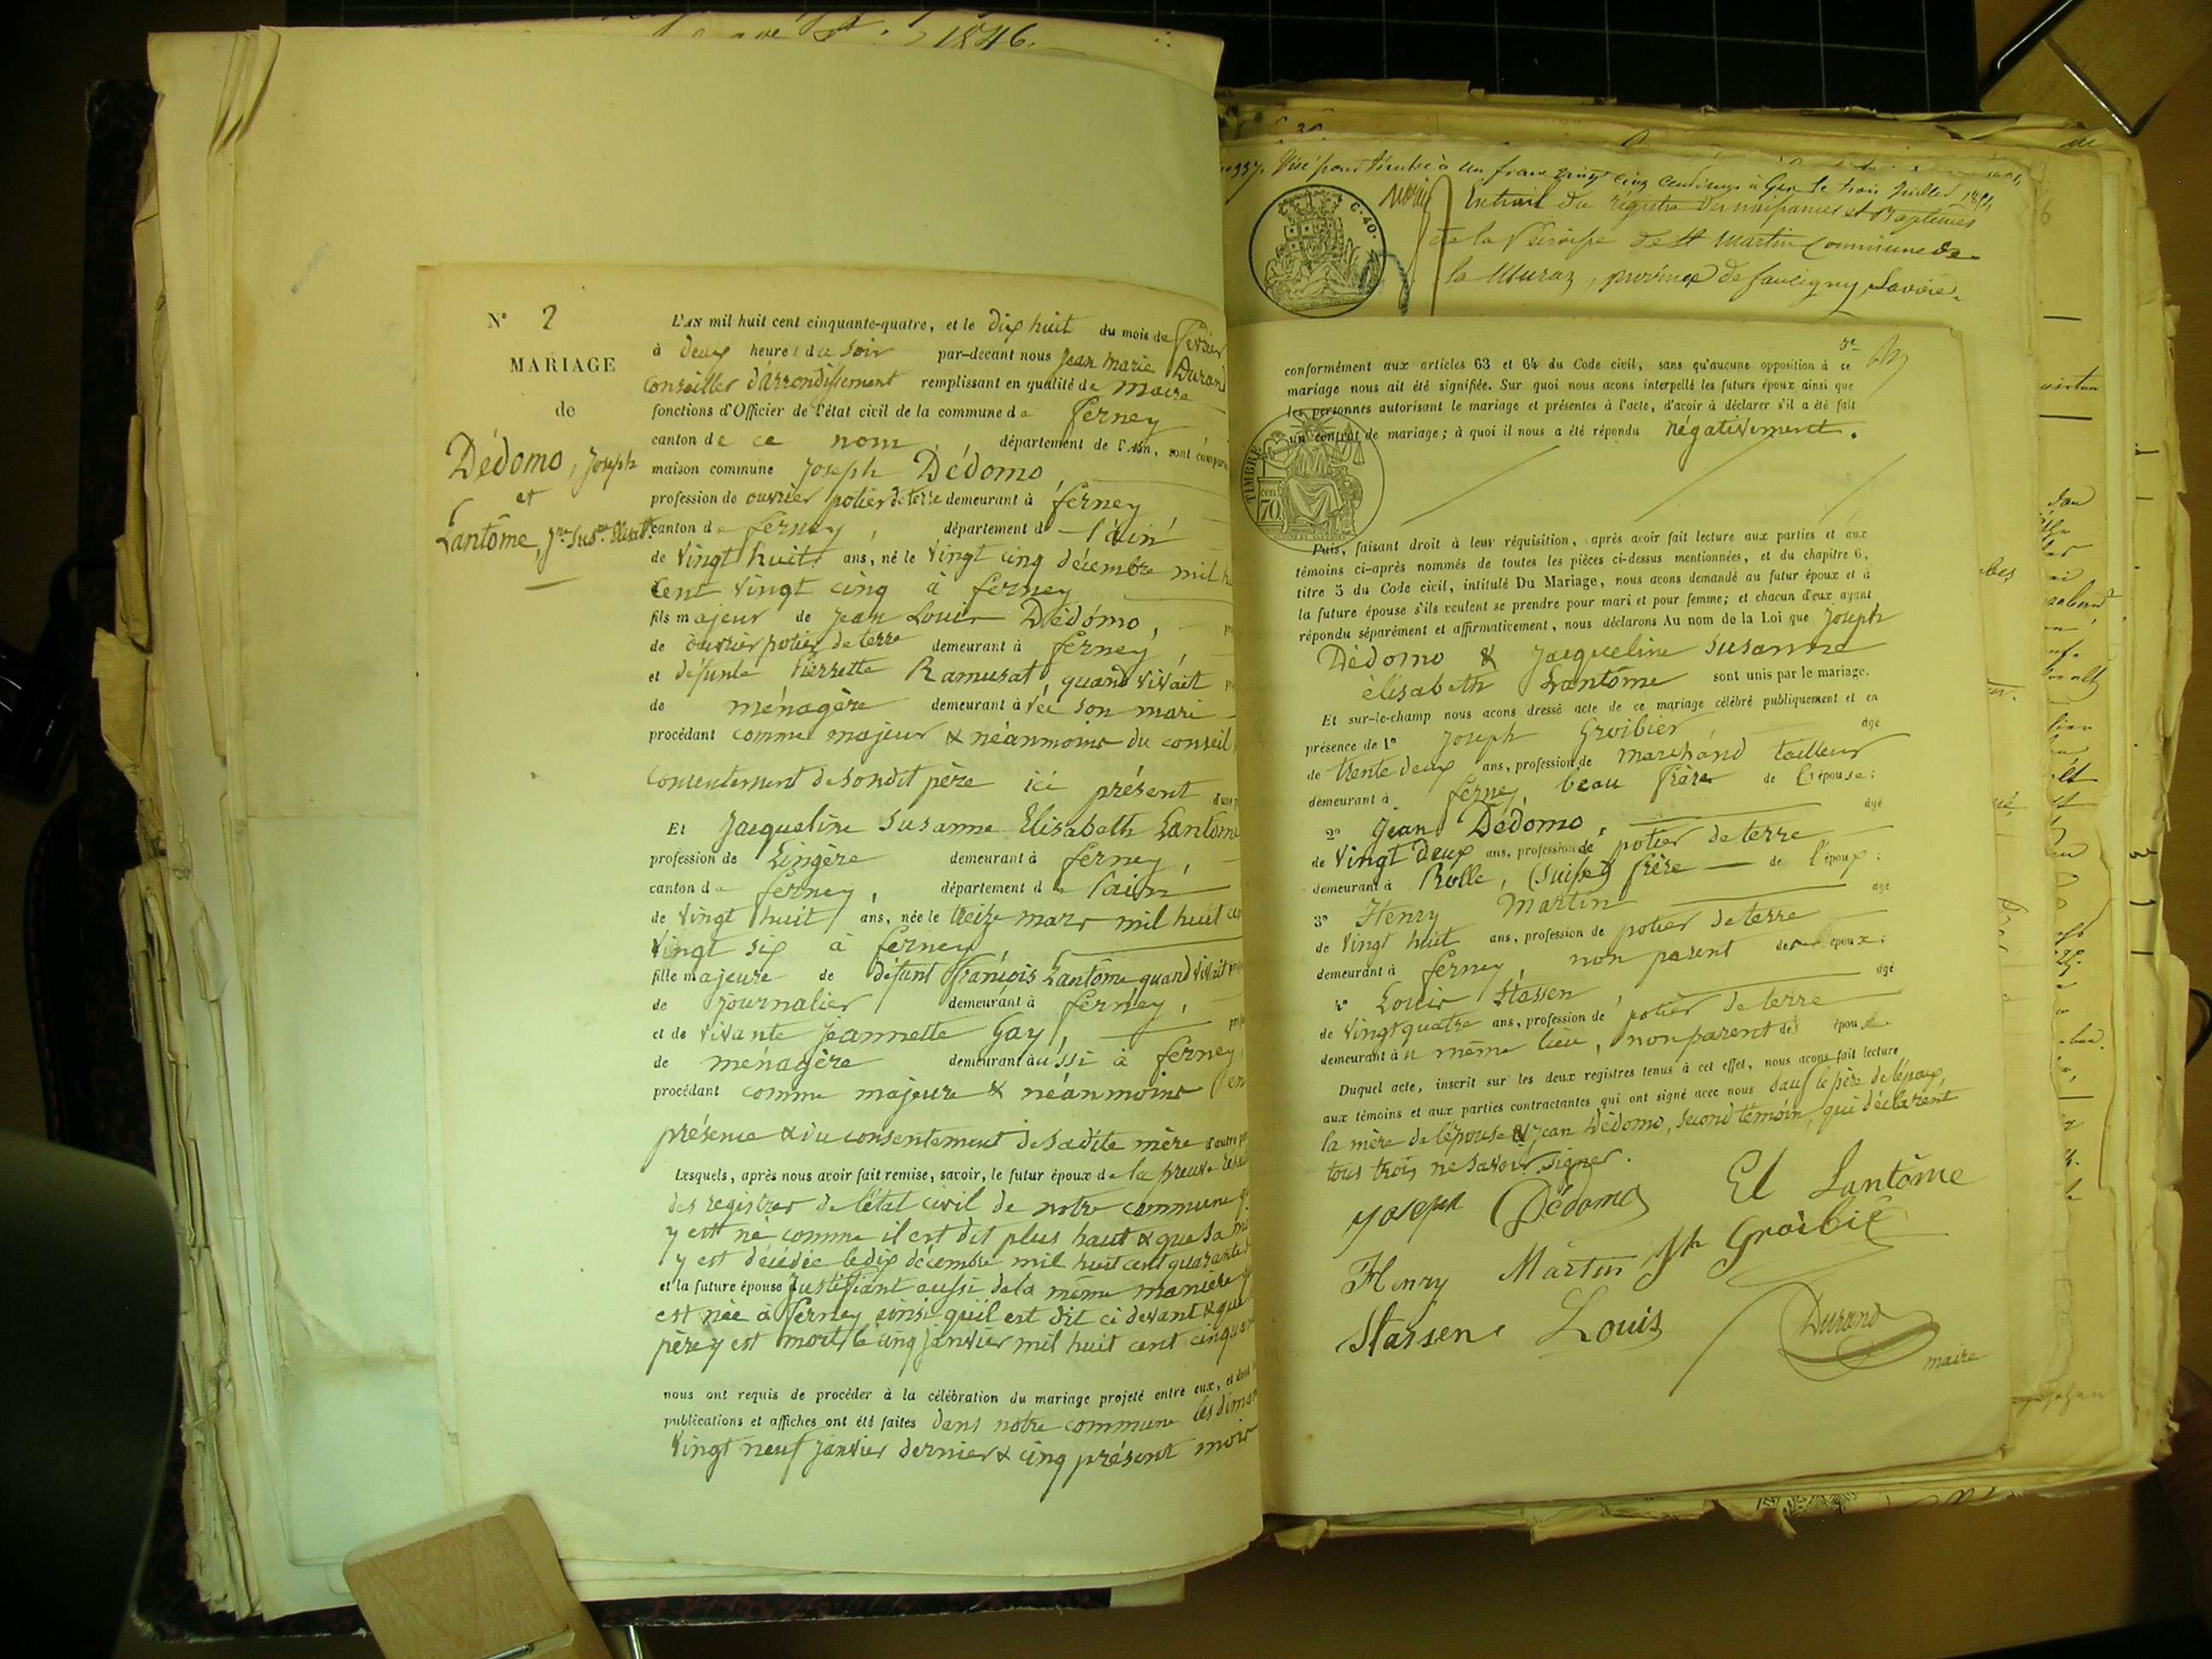 1846.
N° 2
MARIAGE
de
Dédomo, Joseph
et
Lantôme, Jne Susne Elisath
L'AN mil huit cent cinquante-quatre, et le dix huit du mois de février
à deux heures du soir par-devant nous Jean Marie Durand
Conseiller d'arrondissement remplissant en qualité de maire
fonctions d'Officier de l'état civil de la commune de Ferney
canton de ce nom, département de l'Ain, sont comparu
maison commune Joseph Dédomo
profession de ouvrier potier de terre demeurant à ferney
canton de ferney, département de l'ain
de vingt huit ans, né le vingt cinq décembre mil
cent vingt cinq à ferney
fils majeur de Jean Louis Dédomo,
de ouvrier potier de terre demeurant à ferney,
et défunte Pierrette Ramusat, quand vivait
de ménagère demeurant avec son mari
procédant comme majeur & néanmoins du conseil
consentement de sondit père ici présent
Et Jacqueline Susanne Elisabeth Lantôme
profession de Lingère demeurant à ferney,
canton de ferney, département de l'ain
de vingt huit ans, née le treize mars mil huit
vingt six à ferney,
fille majeure de défunt François Lantôme quand vivait
de journalier demeurant à ferney,
et de vivante Jeannette Gay,
de ménagère demeurant aussi à ferney
procédant comme majeure & néanmoins en
présence & du consentement de sadite mère d'autre
Lesquels, après nous avoir fait remise, savoir, le futur époux de la preuve
des registres de l'état civil de notre commune
y est né comme il est dit plus haut & que sa
y est décédée le dix décembre mil huit cent quarante
et la future épouse Justifiant aussi de la même manière
est née à Ferney ainsi qu'il est dit ci devant & que
père y est mort le cinq janvier mil huit cent
nous ont requis de procéder à la célébration du mariage projeté entre eux, et dont
publications et affiches ont été faites dans notre commune les
vingt neuf janvier dernier & cinq présent mois
Visé pour timbre à un franc vingt cinq centimes à Gex le trois Juillet
C. 40.
Extrait du régistre des naissances et Baptêmes
de la Paroisse de St Martin Commune de
la Muraz, province de faucigny, Savoie.
conformément aux articles 63 et 64 du Code civil, sans qu'aucune opposition à ce
mariage nous ait été signifiée. Sur quoi nous avons interpellé les futurs époux ainsi que
les personnes autorisant le mariage et présentes à l'acte, d'avoir à déclarer s'il a été fait
un contrat de mariage; à quoi il nous a été répondu négativement.
TIMBRE
cen 70
Puis, faisant droit à leur réquisition, après avoir fait lecture aux parties et aux
témoins ci-après nommés de toutes les pièces ci-dessus mentionnées, et du chapitre 6,
titre 5 du Code civil, intitulé Du Mariage, nous avons demandé au futur époux et à
la future épouse s'ils veulent se prendre pour mari et pour femme; et chacun d'eux ayant
répondu séparément et affirmativement, nous déclarons Au nom de la Loi que Joseph
Dédomo & Jacqueline Susanne
élisabeth Lantôme sont unis par le mariage.
Et sur-le-champ nous avons dressé acte de ce mariage célébré publiquement et en
présence de 1° Joseph Groibier âgé
de trente deux ans, profession de marchand tailleur
demeurant à ferney, beau frère de l'épouse:
2° Jean Dédomo, âgé
de vingt deux ans, profession de potier de terre
demeurant à Rolle, (Suisse) frère de l'époux:
3° Henry Martin âgé
de vingt huit ans, profession de potier de terre
demeurant à ferney, non parent des époux:
4° Louis Stassen, âgé
de vingt quatre ans, profession de potier de terre
demeurant au même lieu, non parent des époux
Duquel acte, inscrit sur les deux registres tenus à cet effet, nous avons fait lecture
aux témoins et aux parties contractantes qui ont signé avec nous sauf le père de l'époux,
la mère de l'épouse & Jean Dédomo, second témoin, qui déclarent
tous trois ne savoir signer.
Joseph Dédomo El Lantôme
Henry Martin Jh Groibié
Stassen Louis Durand
maire